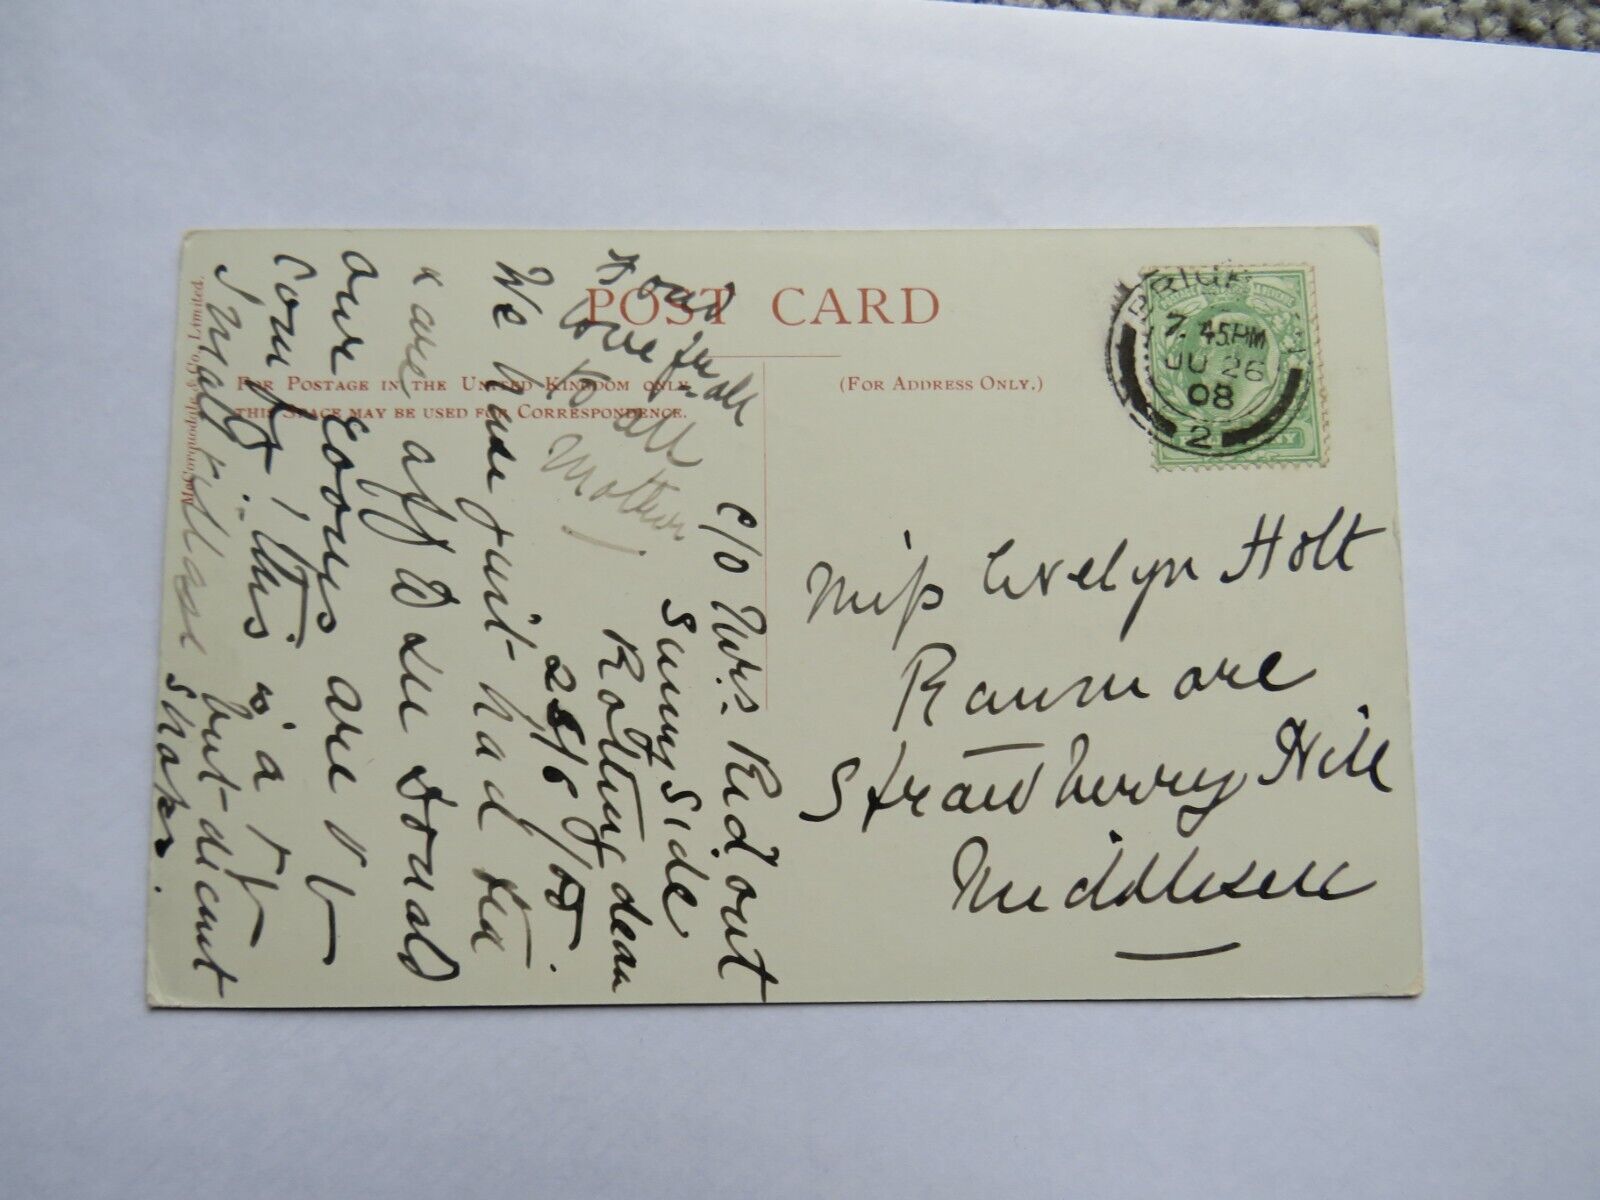 POST CARD
FOR POSTAGE IN THE UNITED KINGDOM ONLY,
THIS SPACE MAY BE USED FOR CORRESPONDENCE.
(FOR ADDRESS ONLY.)
McCorquodale & Co., Limited.
BRIGHTON
7. 45 PM
JU 26
08
2
c/o Mrs. Ridout
Sunny Side
Rottingdean
26/6/08.
We have just had tea
& are off to see Donald
our rooms are v
comf. this is a
small village but decent
shops.
love from all
to all
Mother
Miss Evelyn Holt
Ranmore
Strawberry Hill
Middlesex